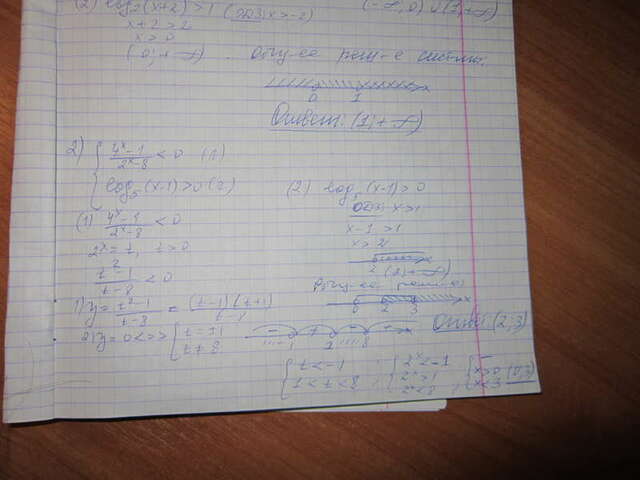 (2) log₂(x+2) > 1 (ОДЗ: x > -2)
x+2 > 2
x > 0
(0; + ∞)
(-∞; 0) ∪ (1; +∞)
системы:
0 1
Ответ: (1; + ∞)
2) { (4ˣ - 1)/(2ˣ - 8) < 0 (1)
log₅(x-1) > 0 (2)
(1) (4ˣ - 1)/(2ˣ - 8) < 0
2ˣ = t, t > 0
(t² - 1)/(t - 8) < 0
1) y = (t² - 1)/(t - 8) = (t-1)(t+1)/(t-8)
2) y = 0 <=> { t = ±1
t ≠ 8
-1 1 8
{ t < -1
1 < t < 8 ;
{ 2ˣ < -1
2ˣ > 1
2ˣ < 8 ;
{ x > 0
x < 3 (0; 3)
(2) log₅(x-1) > 0
ОДЗ: x > 1
x - 1 > 1
x > 2
2 (2; + ∞)
0 2 3 x
Ответ: (2; 3)